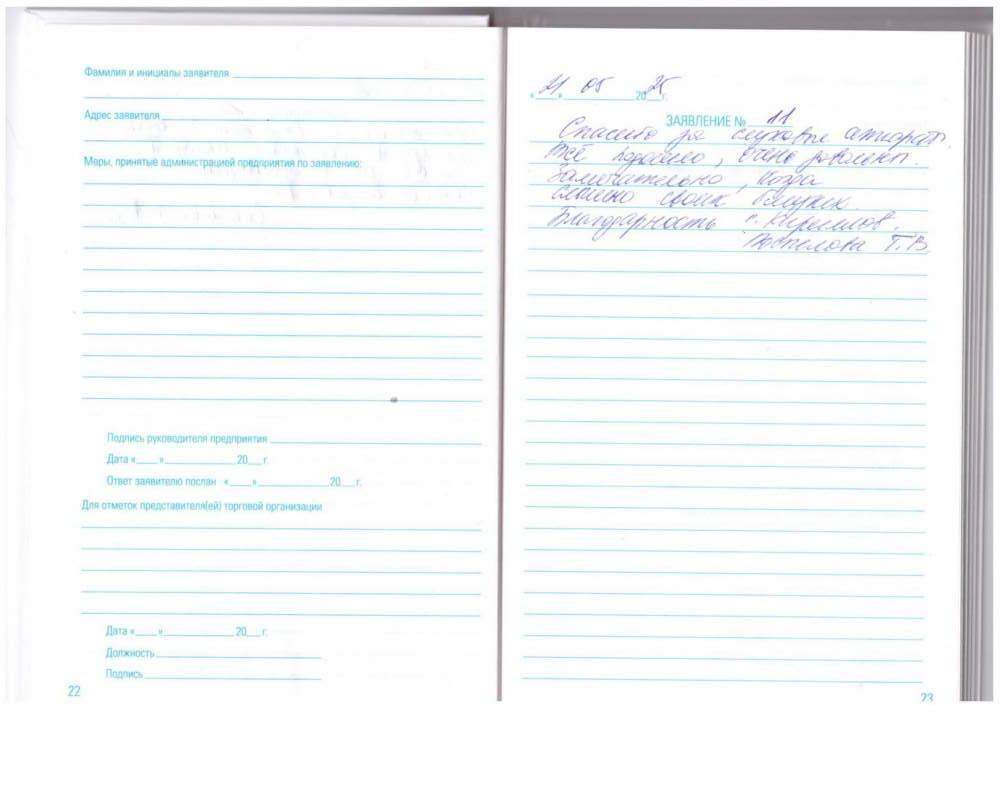 Фамилия и инициалы заявителя
Адрес заявителя
Меры, принятые администрацией предприятия по заявлению:
Подпись руководителя предприятия
Дата «___»____________20__г.
Ответ заявителю послан «___»____________20__г.
Для отметок представителя(ей) торговой организации
Дата «___»____________20__г.
Должность
Подпись
22
«21» 05 2025г.
ЗАЯВЛЕНИЕ № 11
Спасибо за слуховые аппараты.
Всё подошло, очень довольны.
Замечательно, когда
слышно своих близких.
Благодарность
Т.В.
23